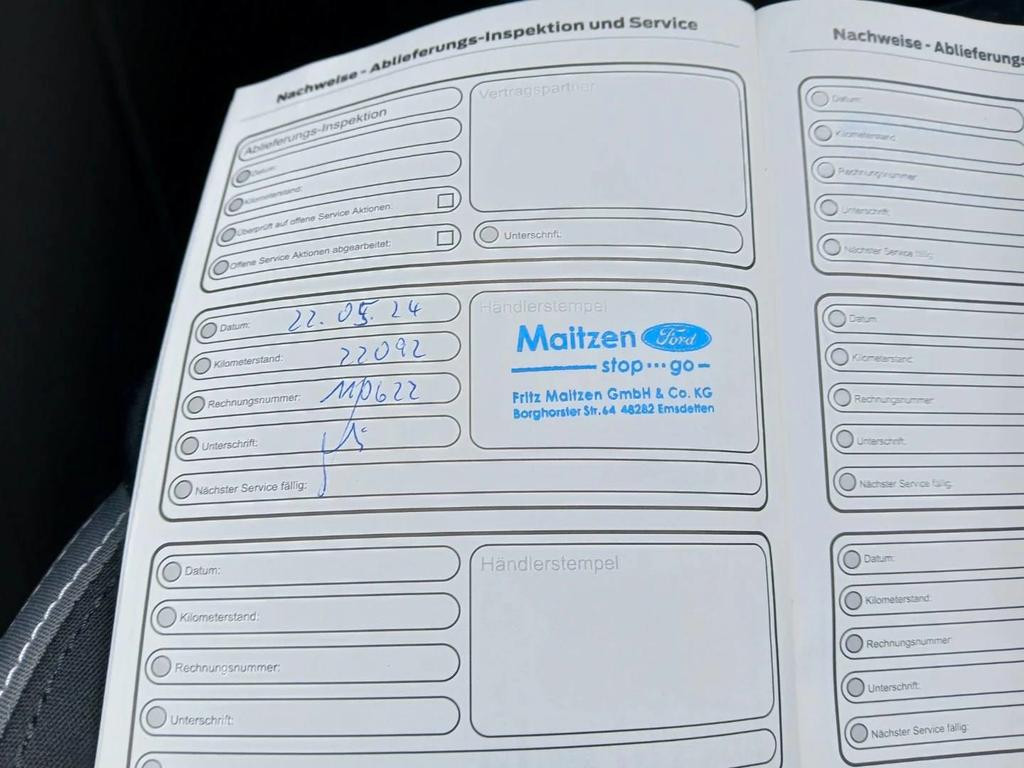 Nachweise - Ablieferungs-Inspektion und Service
Ablieferungs-Inspektion
Datum:
Kilometerstand:
Überprüft auf offene Service Aktionen:
Offene Service Aktionen abgearbeitet:
Vertragspartner
Unterschrift:
Datum: 22.05.24
Kilometerstand: 22092
Rechnungsnummer:
Unterschrift:
Nächster Service fällig:
Händlerstempel
Maitzen Ford
stop···go
Fritz Maitzen GmbH & Co. KG
Borghorster Str. 64 48282 Emsdetten
Datum:
Kilometerstand:
Rechnungsnummer:
Unterschrift:
Händlerstempel
Nachweise - Ablieferungs
Datum:
Kilometerstand:
Rechnungsnummer:
Unterschrift:
Nächster Service fällig:
Datum:
Kilometerstand:
Rechnungsnummer:
Unterschrift:
Nächster Service fällig:
Datum:
Kilometerstand:
Rechnungsnummer:
Unterschrift:
Nächster Service fällig: